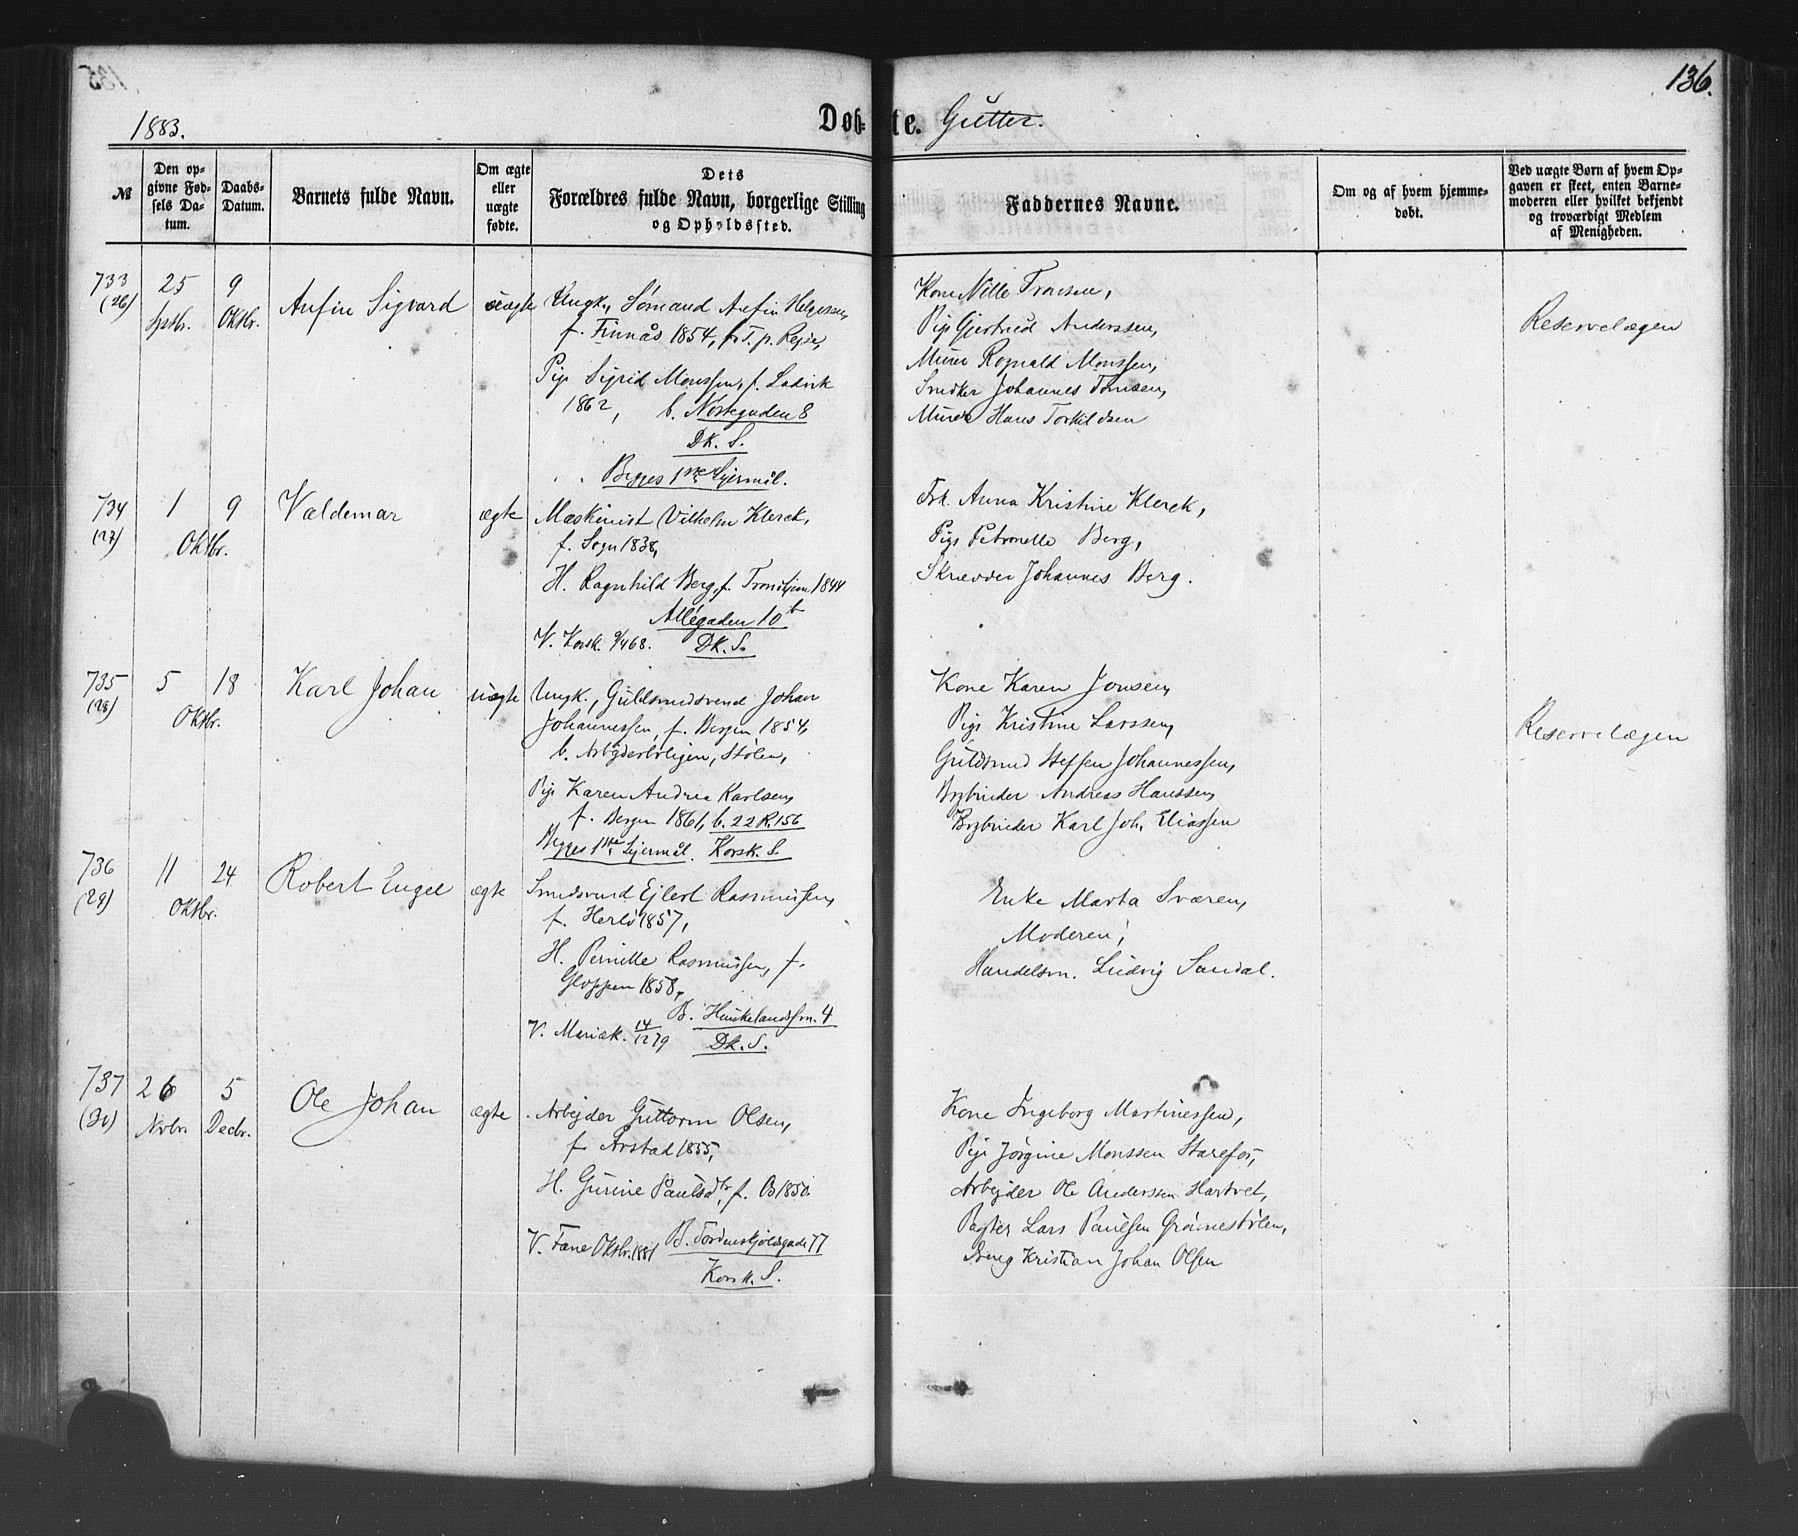 136.
1883.
Døb-te. Gutter.
№
Den opgivne Fødsels Datum.
Daabs-Datum.
Barnets fulde Navn.
Om ægte eller uægte fødte.
Dets Forældres fulde Navn, borgerlige Stilling og Opholdssted.
Faddernes Navne.
Om og af hvem hjemmedøbt.
Ved uægte Børn af hvem Opgaven er skeet, enten Barnemoderen eller hvilket bekjendt og troværdigt Medlem af Menigheden.
733 25 9 Anfin Sigvard uægte Ungk., Sømand Anfin Helgesen,
(26) Septbr. Oktbr.
f. Finnås 1854, T. p. Rejse,
Pige Sigrid Monssen, f. Ladvik
1862, b. Nøstegaden 8
Dk. S.
Begges 1ste Lejermål.
Kone Nille Tronsen,
Pige Gjertrud Anderssen,
Murer Rognald Monssen,
Snedker Johannes Tomsen,
Murer Hans Torkildsen
Reservelægen
734 1 9 Valdemar ægte Maskinist Vilhelm Klerck,
(27) Oktbr.
f. Sogn 1838,
H. Ragnhild Berg, f. Trondhjem 1844
Allégaden 10b
V. Korsk. 9/4 68. Dk. S.
Frk. Anna Kristine Klerck,
Pige Petronelle Berg,
Skrædder Johannes Berg.
735 5 18 Karl Johan uægte Ungk., Guldsmedsvend Johan
(28) Oktbr.
Johannessen, f. Bergen 1854,
b. Arbejderboligen, Stølen,
Pige Karen Andrea Karlsen,
f. Bergen 1861, b. 22 R. 156
Begges 1ste Lejermål. Korsk. S.
Kone Karen Jonsen,
Pige Kristine Larssen,
Guldsmed Steffen Johannessen,
Bogbinder Andreas Hanssen,
Bogbinder Karl Joh. Eliassen
Reservelægen
736 11 24 Robert Engel ægte Smedsvend Ejlert Rasmussen,
(29) Oktbr.
f. Herlø 1857,
H. Pernille Rasmussen, f.
Gloppen 1858,
B. Haukelandssm. 4
V. Mariæk. 14/12 79 Dk. S.
Enke Marta Sværen,
Moderen,
Handelsm. Ludvig Sandal.
737 26 5 Ole Johan ægte Arbejder Guttorm Olsen,
(30) Novbr. Decbr.
f. Arstad 1855,
H. Gurine Paulsdtr, f. Os 1850.
V. Fane Oktbr. 1881 B. Tordenskjoldsgade 77
Korsk. S.
Kone Ingeborg Martinessen,
Pige Jørgine Monssen Starefos,
Arbejder Ole Anderssen Hartvet,
Pagter Lars Paulsen Grønnestølen,
Dreng Kristian Johan Olsen